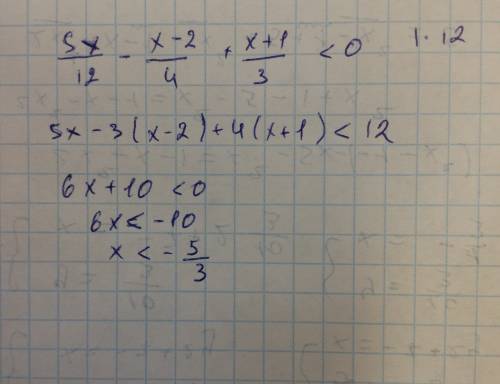 5x/12 - x-2/4 + x+1/3 < 0 | · 12
5x - 3(x-2) + 4(x+1) < 12
6x + 10 < 0
6x < -10
x < - 5/3